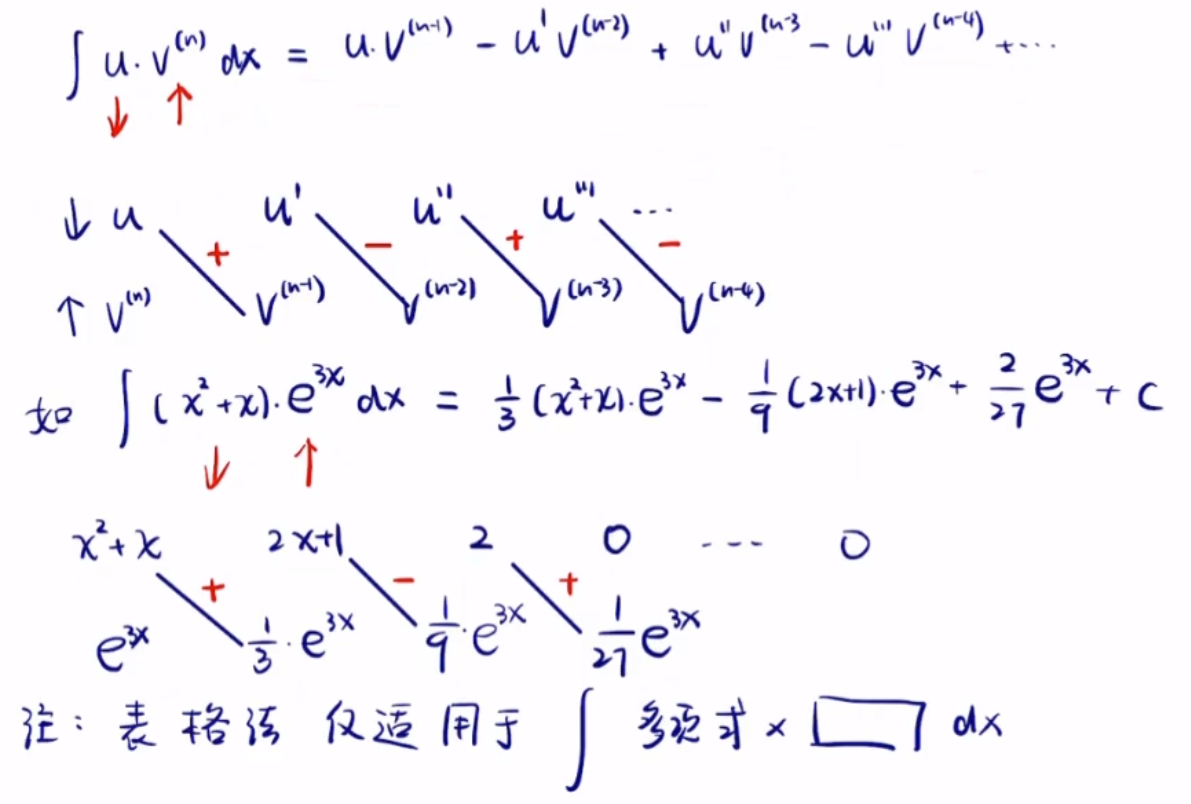 ∫ u·v^(n) dx = u·v^(n-1) - u'v^(n-2) + u''v^(n-3 - u'''v^(n-4) + ···
↓ ↑
↓ u u' u'' u''' ···
+ - + -
↑ v^(n) v^(n-1) v^(n-2) v^(n-3) v^(n-4)
如 ∫ (x²+x)·e^3x dx = 1/3 (x²+x)·e^3x - 1/9 (2x+1)·e^3x + 2/27 e^3x + C
↓ ↑
x²+x 2x+1 2 0 ··· 0
+ - +
e^3x 1/3·e^3x 1/9·e^3x 1/27 e^3x
注: 表格法 仅适用于 ∫ 多项式 × □ dx